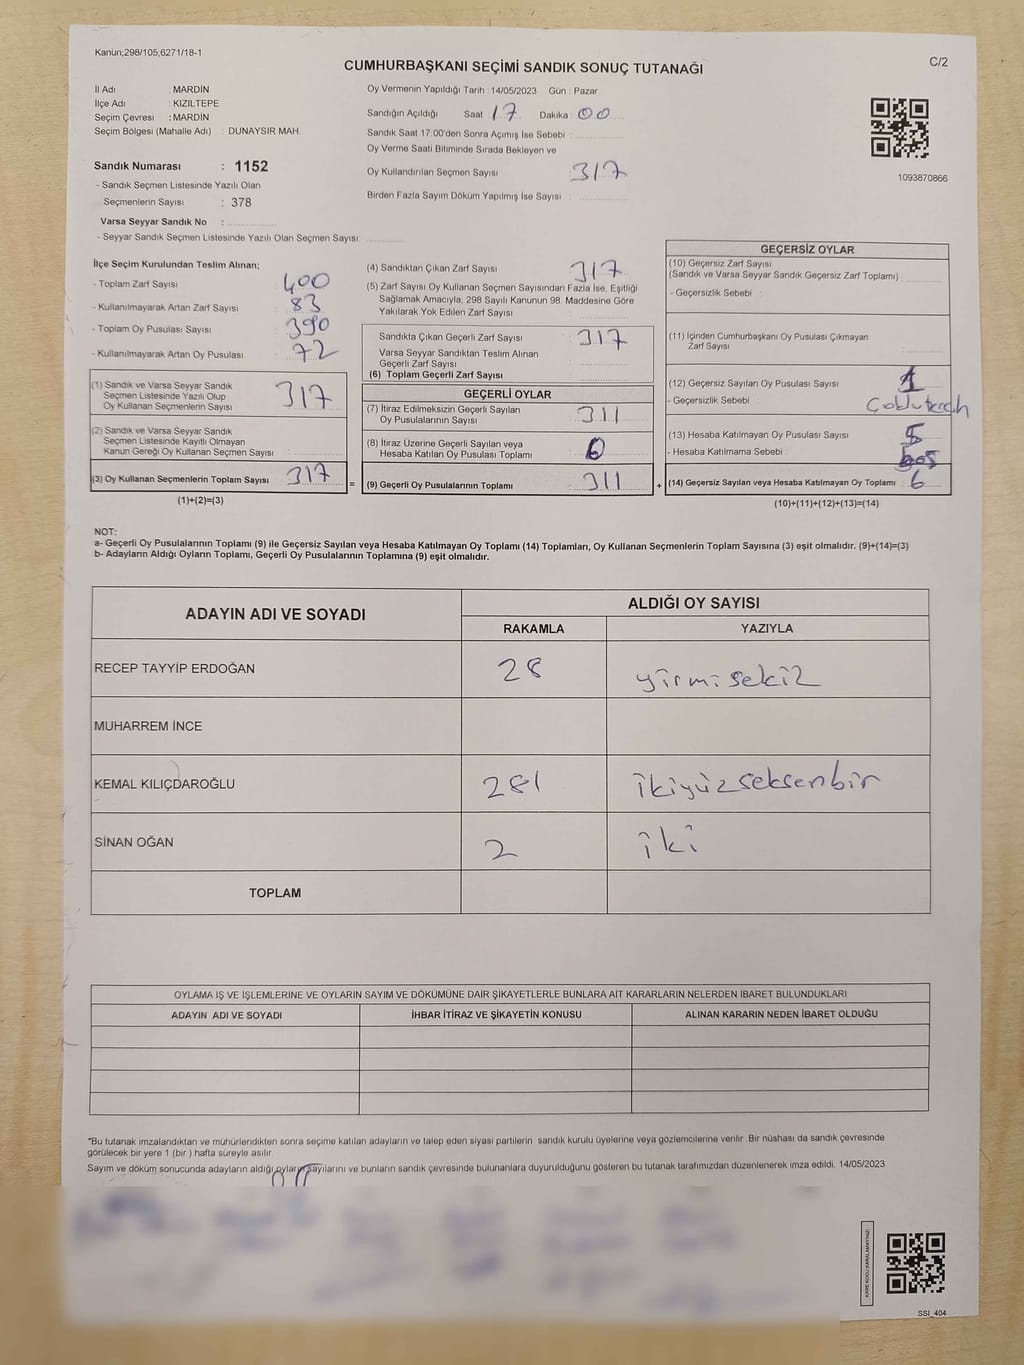 Kanun;298/105,6271/18-1
C/2
CUMHURBAŞKANI SEÇİMİ SANDIK SONUÇ TUTANAĞI
İl Adı : MARDİN
İlçe Adı : KIZILTEPE
Seçim Çevresi : MARDİN
Seçim Bölgesi (Mahalle Adı) : DUNAYSIR MAH.
Sandık Numarası : 1152
- Sandık Seçmen Listesinde Yazılı Olan
Seçmenlerin Sayısı : 378
Varsa Seyyar Sandık No :
- Seyyar Sandık Seçmen Listesinde Yazılı Olan Seçmen Sayısı:
Oy Vermenin Yapıldığı Tarih : 14/05/2023 Gün : Pazar
Sandığın Açıldığı Saat : 17 Dakika : 00
Sandık Saat 17:00'den Sonra Açımış İse Sebebi :
Oy Verme Saati Bitiminde Sırada Bekleyen ve
Oy Kullandırılan Seçmen Sayısı : 317
Birden Fazla Sayım Döküm Yapılmış İse Sayısı :
1093870866
İlçe Seçim Kurulundan Teslim Alınan;
- Toplam Zarf Sayısı : 400
- Kullanılmayarak Artan Zarf Sayısı : 83
- Toplam Oy Pusulası Sayısı : 390
- Kullanılmayarak Artan Oy Pusulası : 72
(1) Sandık ve Varsa Seyyar Sandık
Seçmen Listesinde Yazılı Olup
Oy Kullanan Seçmenlerin Sayısı : 317
(2) Sandık ve Varsa Seyyar Sandık
Seçmen Listesinde Kayıtlı Olmayan
Kanun Gereği Oy Kullanan Seçmen Sayısı :
(3) Oy Kullanan Seçmenlerin Toplam Sayısı : 317
(1)+(2)=(3)
(4) Sandıktan Çıkan Zarf Sayısı : 317
(5) Zarf Sayısı Oy Kullanan Seçmen Sayısından Fazla İse, Eşitliği
Sağlamak Amacıyla, 298 Sayılı Kanunun 98. Maddesine Göre
Yakılarak Yok Edilen Zarf Sayısı :
Sandıkta Çıkan Geçerli Zarf Sayısı : 317
Varsa Seyyar Sandıktan Teslim Alınan
Geçerli Zarf Sayısı :
(6) Toplam Geçerli Zarf Sayısı :
GEÇERLİ OYLAR
(7) İtiraz Edilmeksizin Geçerli Sayılan
Oy Pusulalarının Sayısı : 311
(8) İtiraz Üzerine Geçerli Sayılan veya
Hesaba Katılan Oy Pusulası Toplamı : 0
= (9) Geçerli Oy Pusulalarının Toplamı : 311 +
GEÇERSİZ OYLAR
(10) Geçersiz Zarf Sayısı
(Sandık ve Varsa Seyyar Sandık Geçersiz Zarf Toplamı) :
- Geçersizlik Sebebi :
(11) İçinden Cumhurbaşkanı Oy Pusulası Çıkmayan
Zarf Sayısı :
(12) Geçersiz Sayılan Oy Pusulası Sayısı : 1
- Geçersizlik Sebebi :
(13) Hesaba Katılmayan Oy Pusulası Sayısı : 5
- Hesaba Katılmama Sebebi : boş
(14) Geçersiz Sayılan veya Hesaba Katılmayan Oy Toplamı : 6
(10)+(11)+(12)+(13)=(14)
NOT:
a- Geçerli Oy Pusulalarının Toplamı (9) ile Geçersiz Sayılan veya Hesaba Katılmayan Oy Toplamı (14) Toplamları, Oy Kullanan Seçmenlerin Toplam Sayısına (3) eşit olmalıdır. (9)+(14)=(3)
b- Adayların Aldığı Oyların Toplamı, Geçerli Oy Pusulalarının Toplamına (9) eşit olmalıdır.
ADAYIN ADI VE SOYADI ALDIĞI OY SAYISI
RAKAMLA YAZIYLA
RECEP TAYYİP ERDOĞAN 28 yirmisekiz
MUHARREM İNCE
KEMAL KILIÇDAROĞLU 281 ikiyüzseksenbir
SİNAN OĞAN 2 iki
TOPLAM
OYLAMA İŞ VE İŞLEMLERİNE VE OYLARIN SAYIM VE DÖKÜMÜNE DAİR ŞİKAYETLERLE BUNLARA AİT KARARLARIN NELERDEN İBARET BULUNDUKLARI
ADAYIN ADI VE SOYADI İHBAR İTİRAZ VE ŞİKAYETİN KONUSU ALINAN KARARIN NEDEN İBARET OLDUĞU
*Bu tutanak imzalandıktan ve mühürlendikten sonra seçime katılan adayların ve talep eden siyasi partilerin sandık kurulu üyelerine veya gözlemcilerine verilir. Bir nüshası da sandık çevresinde
görülecek bir yere 1 (bir ) hafta süreyle asılır.
Sayım ve döküm sonucunda adayların aldığı oyların sayılarını ve bunların sandık çevresinde bulunanlara duyurulduğunu gösteren bu tutanak tarafımızdan düzenlenerek imza edildi. 14/05/2023
KARE KODU KARALAMAYINIZ!
SSI_404